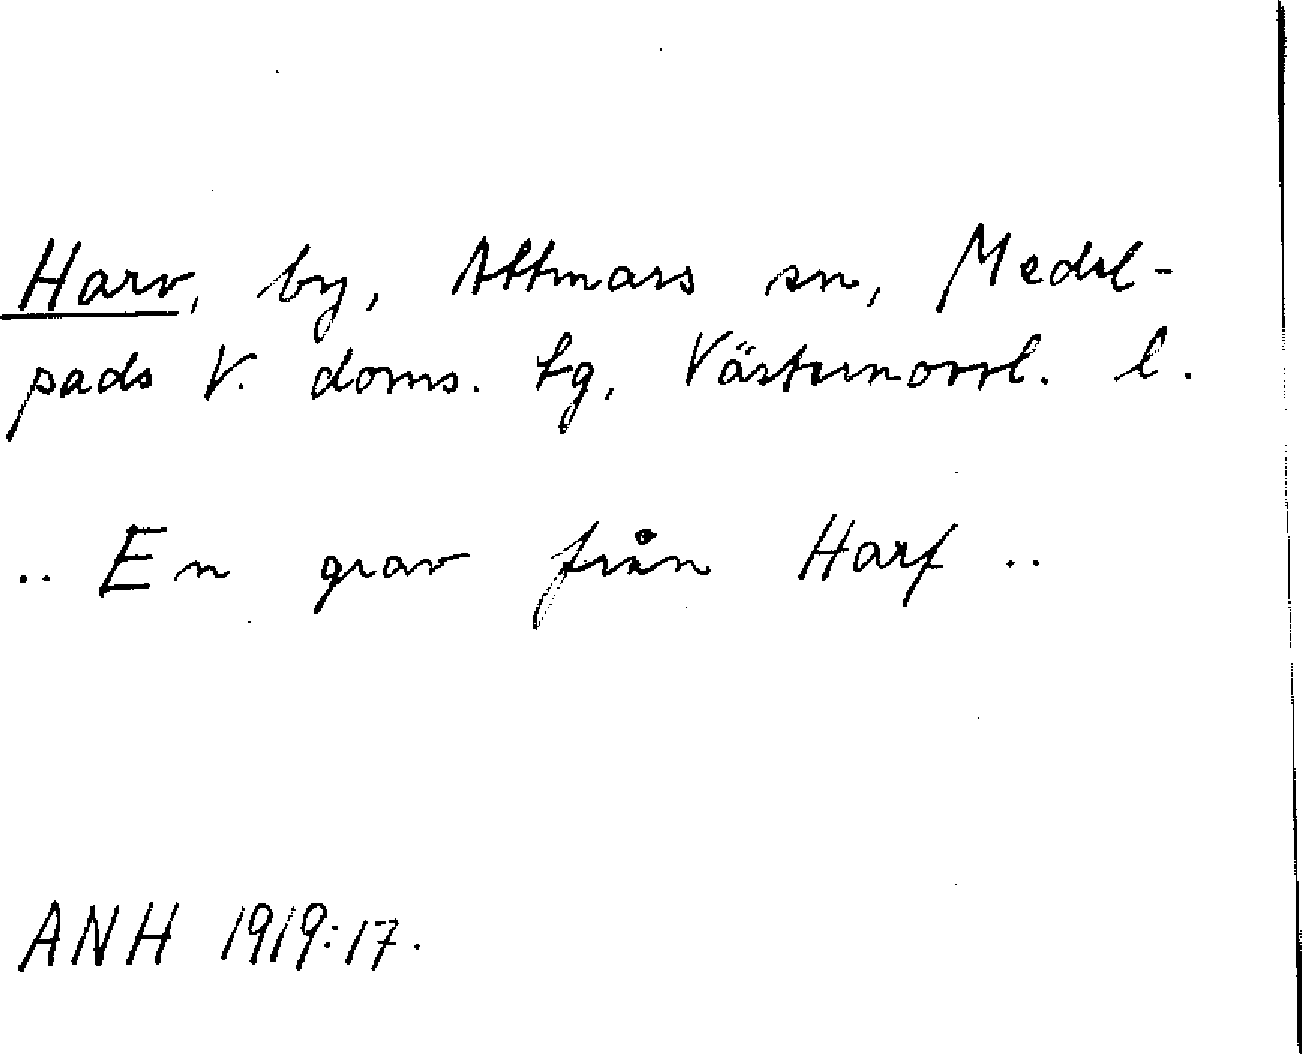 Harv, by, Attmars sn, Medel-
pads V. doms. tg, Västernorrl. l.
.. En grav från Harf ..
ANH 1919:17.